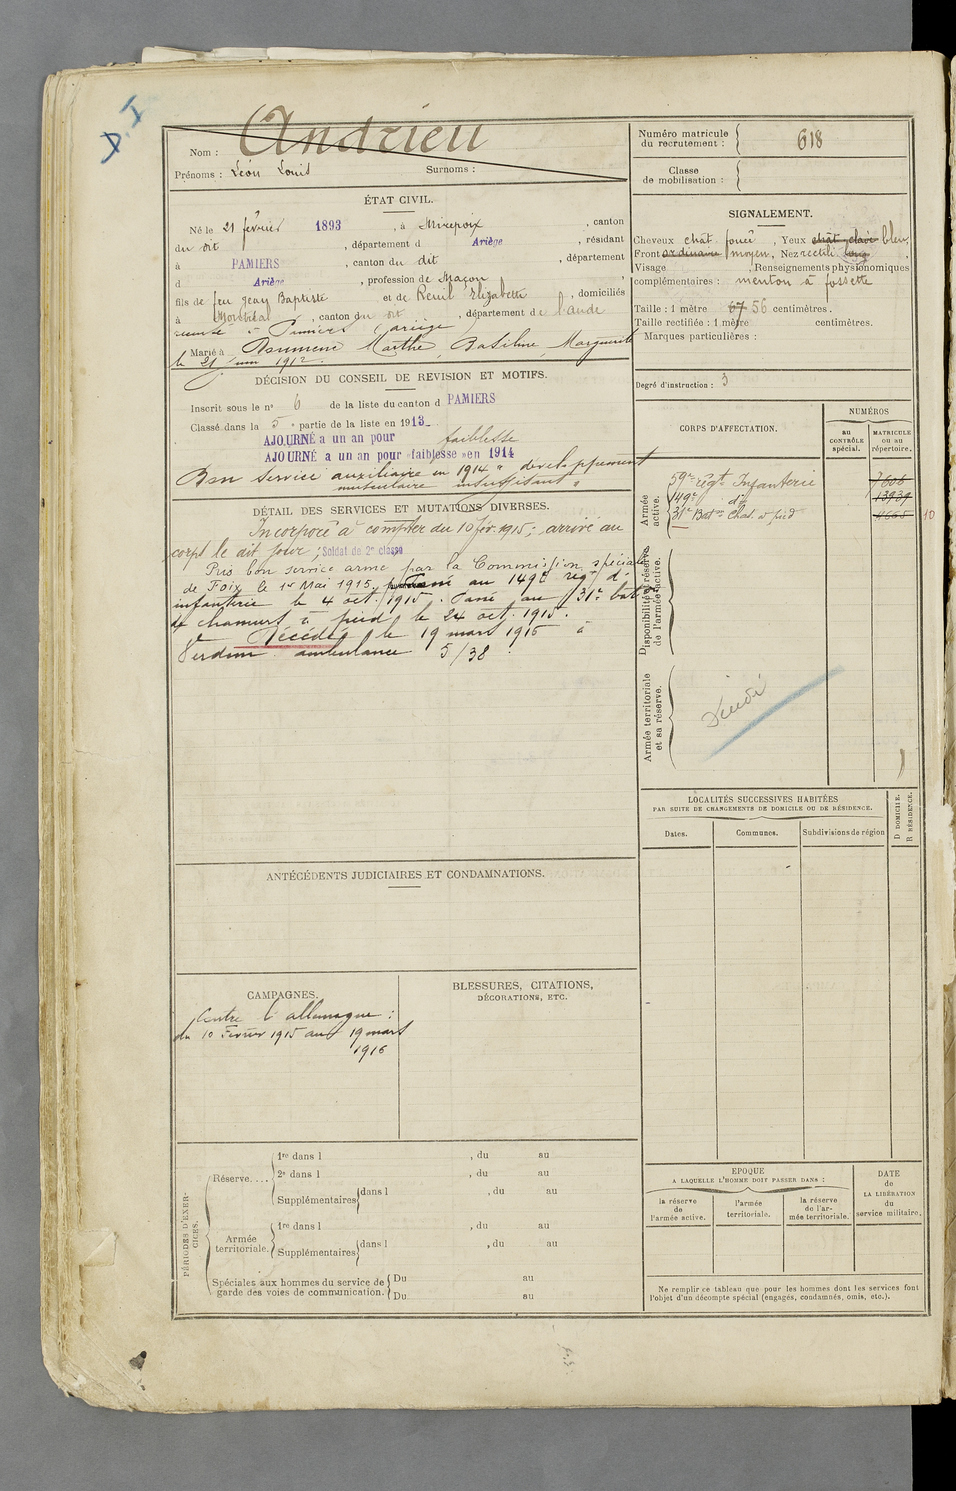 I
Nom : Andrieu
Prénoms : Léon Louis Surnoms :
Numéro matricule du recrutement : 618
Classe de mobilisation :
ÉTAT CIVIL.
Né le 21 février 1893, à Mirepoix, canton
du dit, département d Ariège, résidant
à PAMIERS, canton du dit, département
d Ariège, profession de Maçon
fils de feu Jean Baptiste et de Reuil Elizabette, domiciliés
à Montréal, canton du dit, département de l'aude
à Pamiers (ariège)
Marié à Marthe, Marguerite
le 21 juin 1912.
SIGNALEMENT.
Cheveux chat foncé, Yeux chat clair bleu,
Front ordinaire moyen, Nez rectili long,
Visage , Renseignements physionomiques
complémentaires : menton à fossette
Taille : 1 mètre 67 56 centimètres.
Taille rectifiée : 1 mètre centimètres.
Marques particulières :
Degré d'instruction : 3
DÉCISION DU CONSEIL DE REVISION ET MOTIFS.
Inscrit sous le n° 6 de la liste du canton d PAMIERS
Classé dans la 5e partie de la liste en 1913
AJOURNÉ a un an pour faiblesse
AJOURNÉ a un an pour faiblesse en 1914
Bon Service auxiliaire en 1914 " développement
musculaire insuffisant "
DÉTAIL DES SERVICES ET MUTATIONS DIVERSES.
Incorporé à compter du 10 fév. 1915 ; arrivé au
corps le dit jour ; Soldat de 2e classe
Pris bon service armé par la Commission spéciale
de Foix le 1er Mai 1915. Passé au 149e régt d'
infanterie le 4 oct. 1915. Passé au 31e bat.
de chasseurs à pied le 24 oct. 1915.
Décédé le 19 mars 1916 à
Verdun ambulance 5/38.
CORPS D'AFFECTATION.
NUMÉROS
au CONTRÔLE spécial.
MATRICULE ou au répertoire.
Armée active.
59e régt Infanterie 7606
149e d° 13939
31e Baton Chas. à pied 4665 10
Disponibilité et réserve de l'armée active.
Armée territoriale et sa réserve.
LOCALITÉS SUCCESSIVES HABITÉES
PAR SUITE DE CHANGEMENTS DE DOMICILE OU DE RÉSIDENCE.
Dates.
Communes.
Subdivisions de région
D DOMICILE.
R RÉSIDENCE.
ANTÉCÉDENTS JUDICIAIRES ET CONDAMNATIONS.
CAMPAGNES.
Contre l'allemagne :
du 10 Février 1915 au 19 mars
1916
BLESSURES, CITATIONS,
DÉCORATIONS, ETC.
PÉRIODES D'EXERCICES.
Réserve....
1re dans l , du au
2e dans l , du au
Supplémentaires dans l , du au
Armée territoriale.
1re dans l , du au
Supplémentaires dans l , du au
Spéciales aux hommes du service de garde des voies de communication.
Du au
Du au
EPOQUE
A LAQUELLE L'HOMME DOIT PASSER DANS :
la réserve de l'armée active.
l'armée territoriale.
la réserve de l'armée territoriale.
DATE de LA LIBÉRATION du service militaire.
Ne remplir ce tableau que pour les hommes dont les services font
l'objet d'un décompte spécial (engagés, condamnés, omis, etc.).